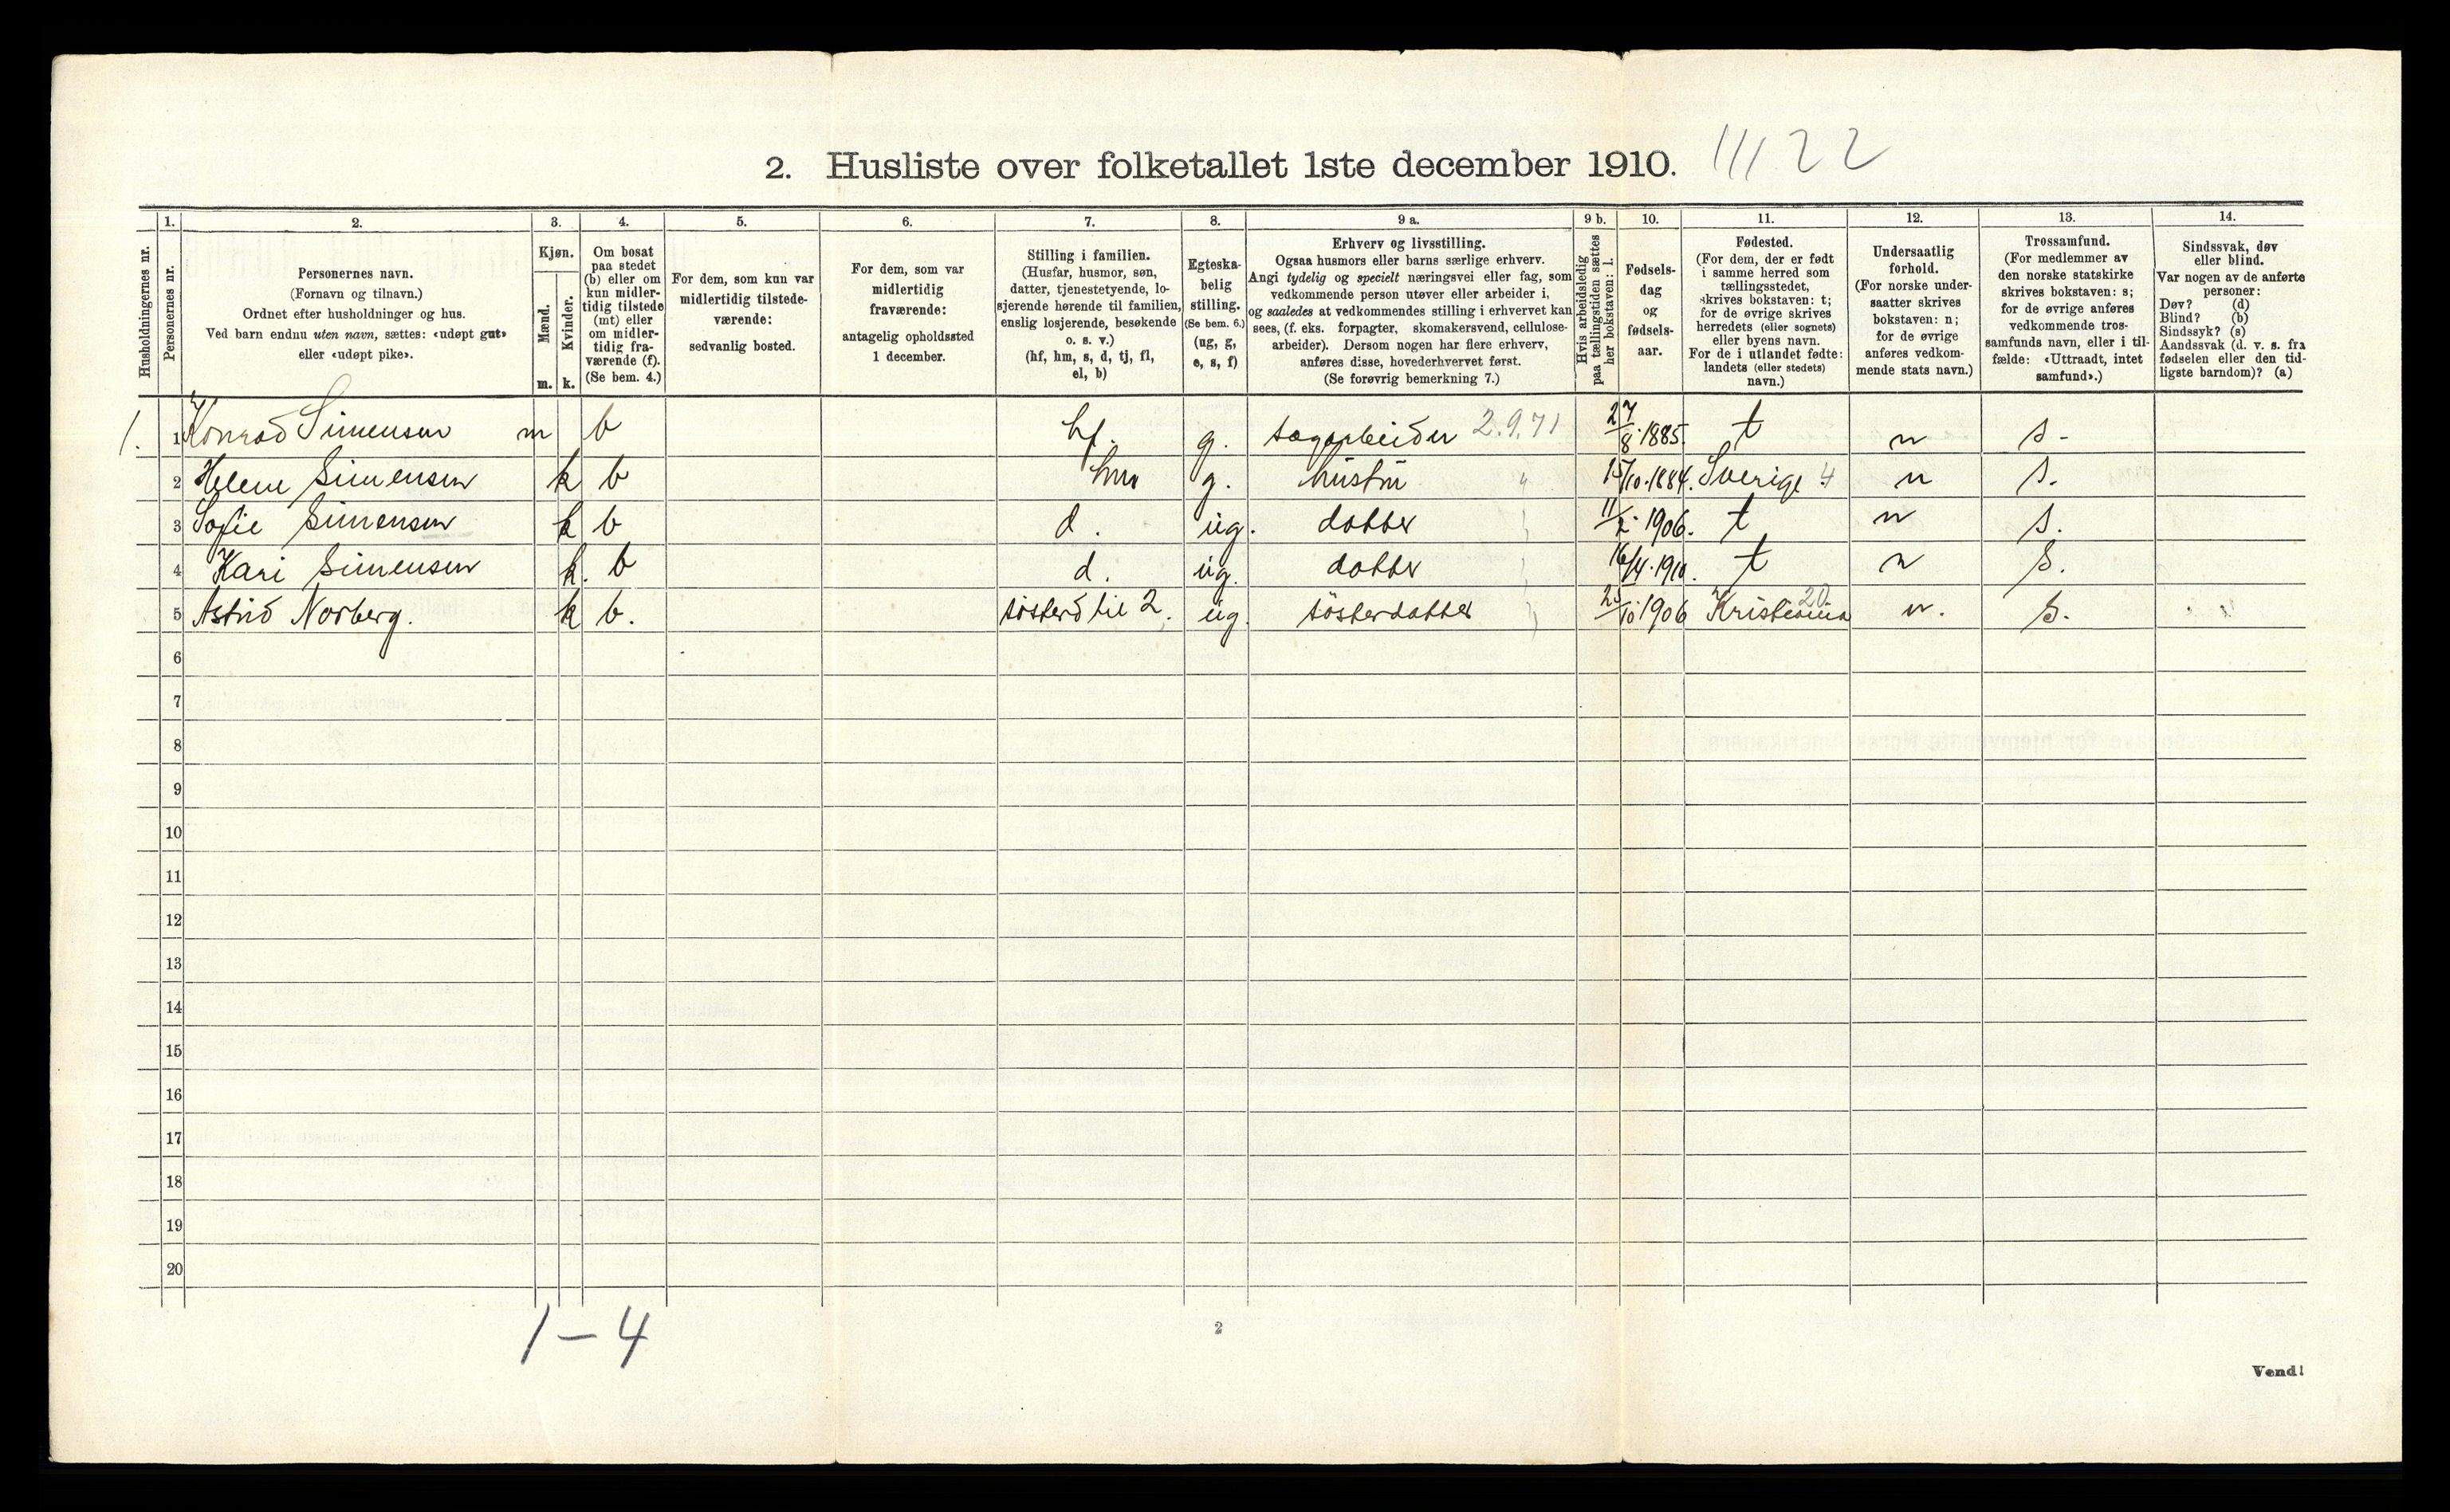 2. Husliste over folketallet 1ste december 1910. 1122
Husholdningernes nr.
1.
Personernes nr.
2.
Personernes navn.
(Fornavn og tilnavn.)
Ordnet efter husholdninger og hus.
Ved barn endnu uten navn, sættes: «udøpt gut»
eller «udøpt pike».
3.
Kjøn.
Mænd.
m.
Kvinder.
k.
4.
Om bosat
paa stedet
(b) eller om
kun midler-
tidig tilstede
(mt) eller
om midler-
tidig fra-
værende (f).
(Se bem. 4.)
5.
For dem, som kun var
midlertidig tilstede-
værende:
sedvanlig bosted.
6.
For dem, som var
midlertidig
fraværende:
antagelig opholdssted
1 december.
7.
Stilling i familien.
(Husfar, husmor, søn,
datter, tjenestetyende, lo-
sjerende hørende til familien,
enslig losjerende, besøkende
o. s. v.)
(hf, hm, s, d, tj, fl,
el, b)
8.
Egteska-
belig
stilling.
(Se bem. 6.)
(ug, g,
e, s, f)
9 a.
Erhverv og livsstilling.
Ogsaa husmors eller barns særlige erhverv.
Angi tydelig og specielt næringsvei eller fag, som
vedkommende person utøver eller arbeider i,
og saaledes at vedkommendes stilling i erhvervet kan
sees, (f. eks. forpagter, skomakersvend, cellulose-
arbeider). Dersom nogen har flere erhverv,
anføres disse, hovederhvervet først.
(Se forøvrig bemerkning 7.)
9 b.
Hvis arbeidsledig
paa tællingstiden sættes
her bokstaven: l.
10.
Fødsels-
dag
og
fødsels-
aar.
11.
Fødested.
(For dem, der er født
i samme herred som
tællingsstedet,
skrives bokstaven: t;
for de øvrige skrives
herredets (eller sognets)
eller byens navn.
For de i utlandet fødte:
landets (eller stedets)
navn.)
12.
Undersaatlig
forhold.
(For norske under-
saatter skrives
bokstaven: n;
for de øvrige
anføres vedkom-
mende stats navn.)
13.
Trossamfund.
(For medlemmer av
den norske statskirke
skrives bokstaven: s;
for de øvrige anføres
vedkommende tros-
samfunds navn, eller i til-
fælde: «Uttraadt, intet
samfund».)
14.
Sindssvak, døv
eller blind.
Var nogen av de anførte
personer:
Døv? (d)
Blind? (b)
Sindssyk? (s)
Aandssvak (d. v. s. fra
fødselen eller den tid-
ligste barndom)? (a)
1. 1 Konrad Simensen m b hf. g. sagarbeider 2.9.71 27/8 1885. t n s.
2 Helene Simensen k b hm g. hustru 15/10.1884. Sverige 4 n s.
3 Sofie Simensen k b d. ug. datter 11/2 1906. t n s.
4 Kari Simensen k. b d. ug. datter 16/4.1910. t n s.
5 Astrid Norberg. k b. søsterd til 2. ug. søsterdatter /10 1906 Kristiania 20 n. s.
6
7
8
9
10
11
12
13
14
15
16
17
18
19
20
1 – 4
2
Vend!